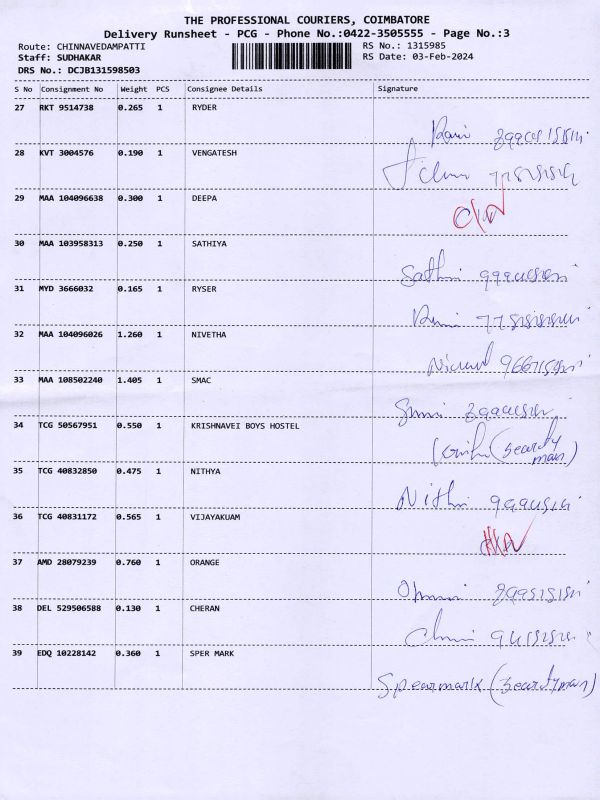 THE PROFESSIONAL COURIERS, COIMBATORE
Delivery Runsheet - PCG - Phone No.:0422-3505555 - Page No.:3
Route: CHINNAVEDAMPATTI RS No.: 1315985
Staff: SUDHAKAR RS Date: 03-Feb-2024
DRS No.: DCJB131598503
S No Consignment No Weight PCS Consignee Details Signature
27 RKT 9514738 0.265 1 RYDER
28 KVT 3004576 0.190 1 VENGATESH
29 MAA 104096638 0.300 1 DEEPA
30 MAA 103958313 0.250 1 SATHIYA
Sathi
31 MYD 3666032 0.165 1 RYSER
32 MAA 104096026 1.260 1 NIVETHA
33 MAA 108502240 1.405 1 SMAC
34 TCG 50567951 0.550 1 KRISHNAVEI BOYS HOSTEL
35 TCG 40832850 0.475 1 NITHYA
Nithi
36 TCG 40831172 0.565 1 VIJAYAKUAM
37 AMD 28079239 0.760 1 ORANGE
38 DEL 529506588 0.130 1 CHERAN
39 EDQ 10228142 0.360 1 SPER MARK
Spearmark